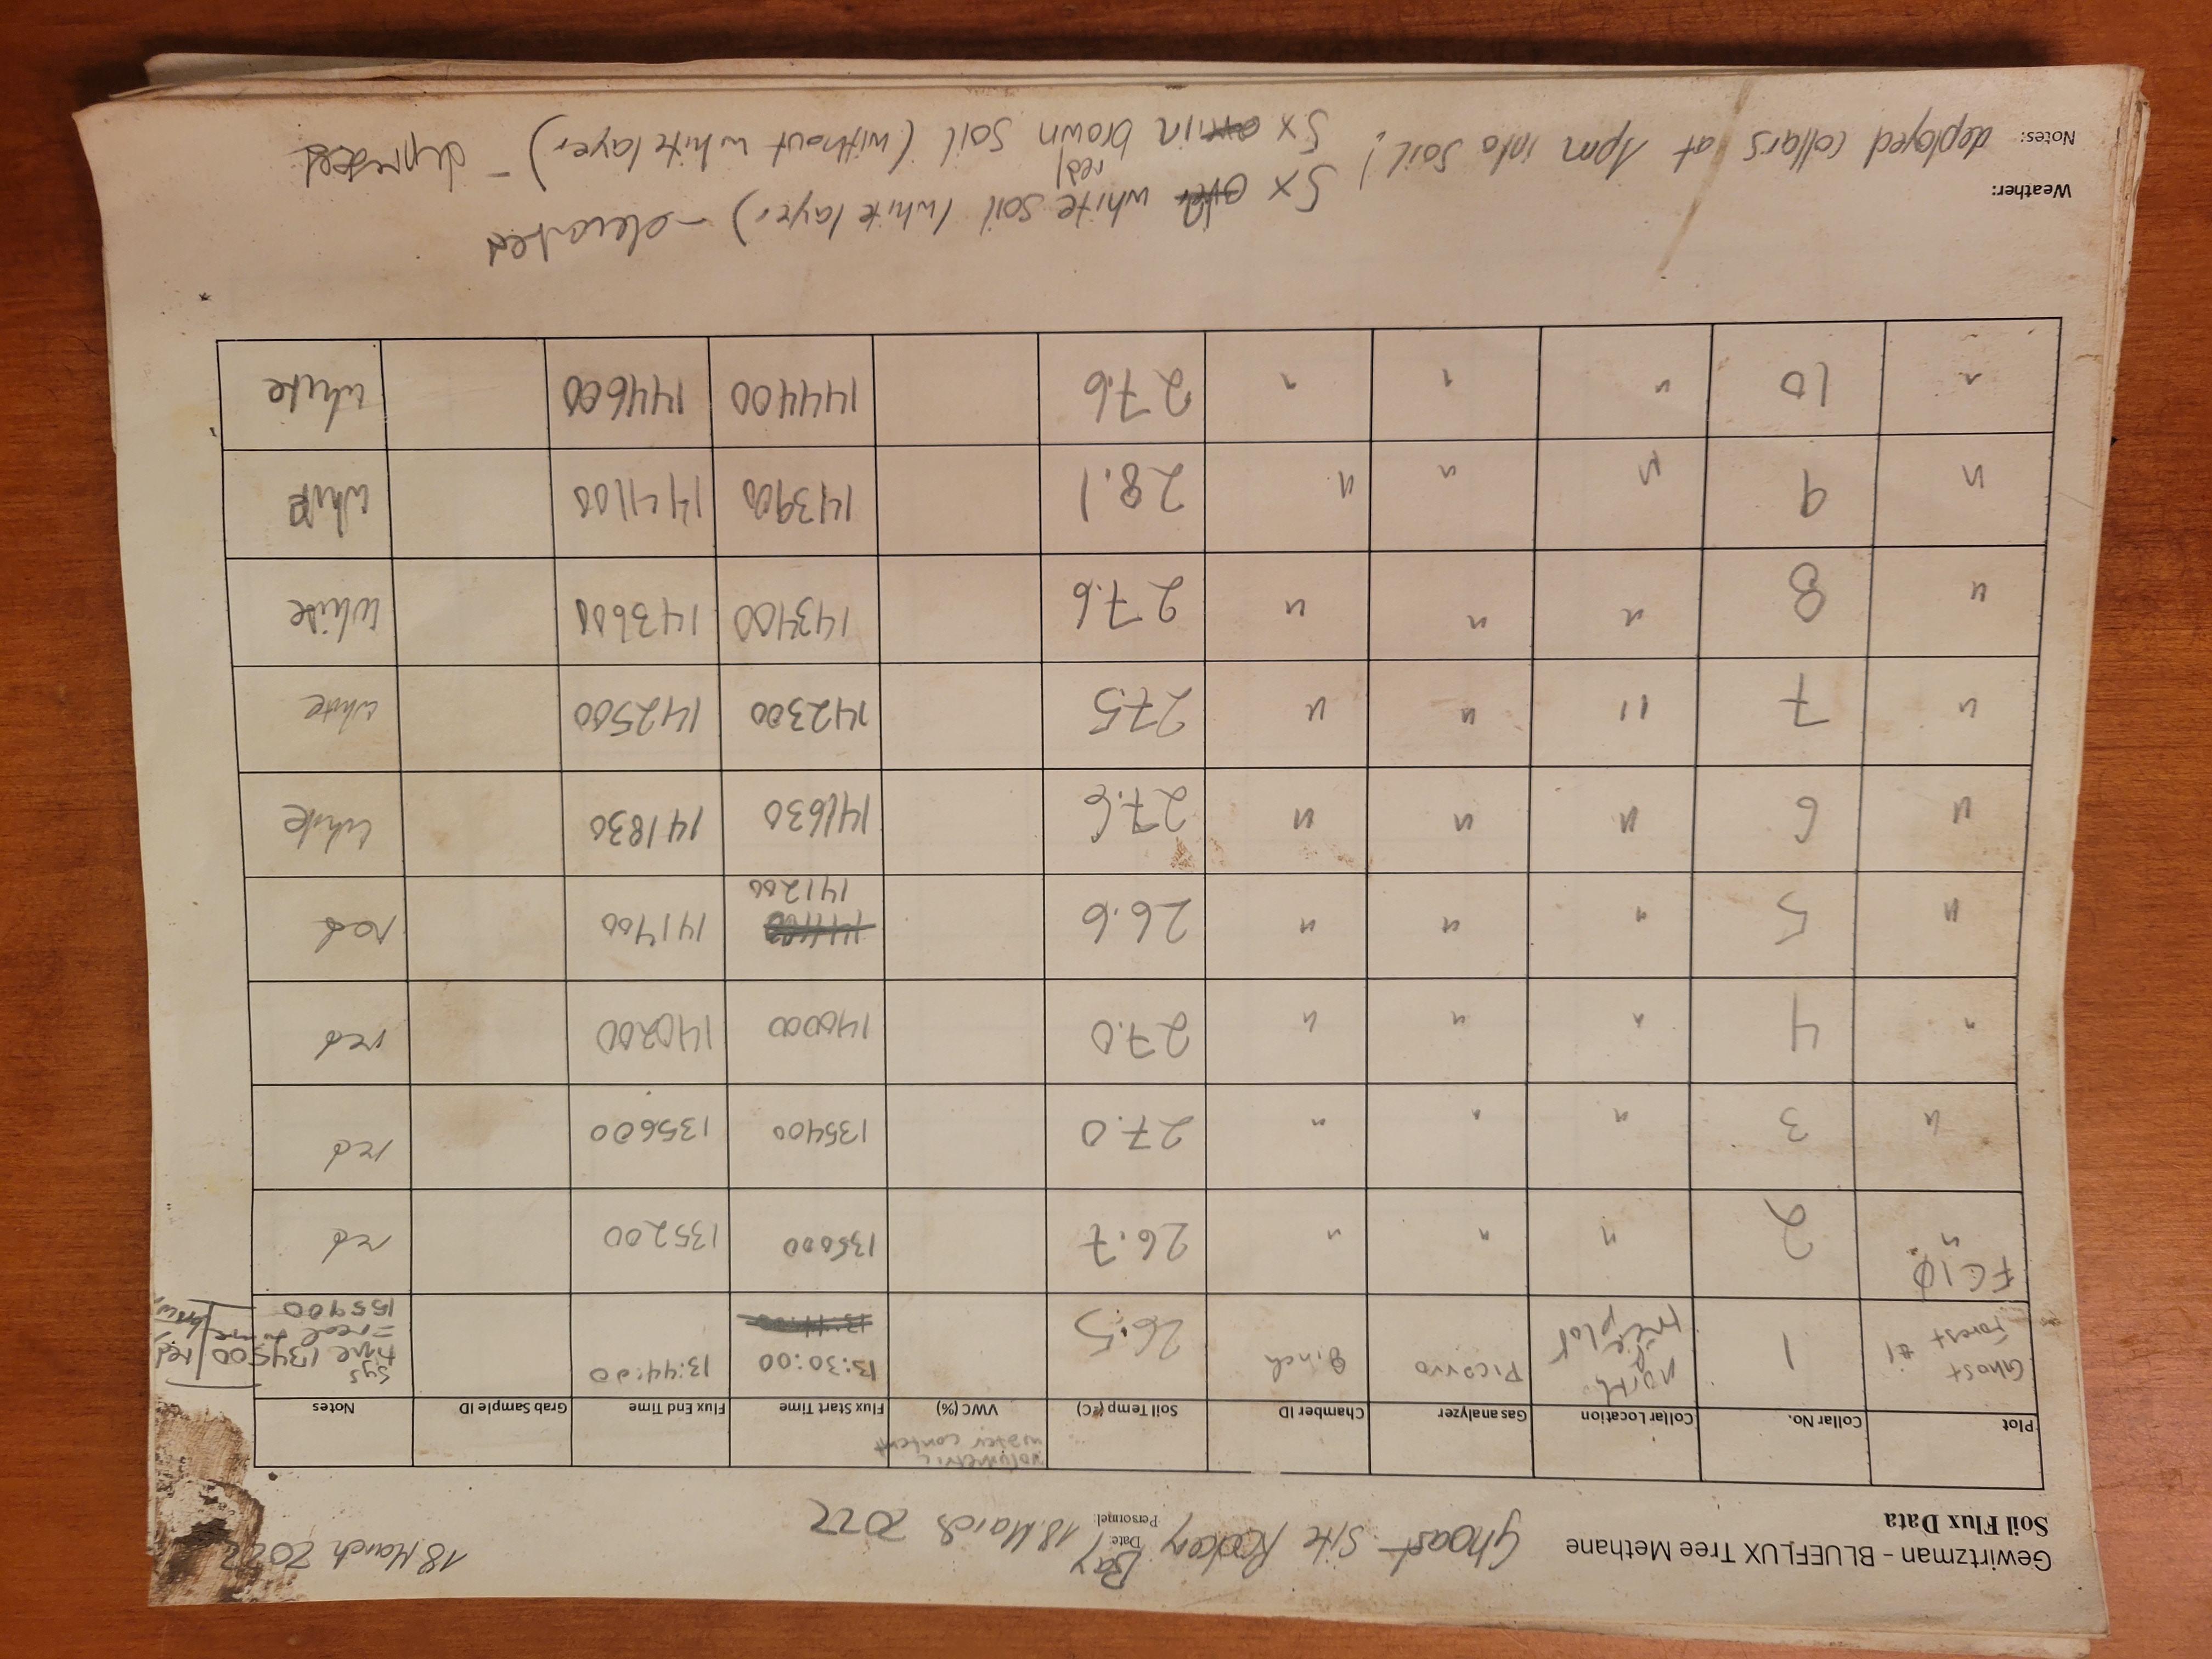 Gewirtzman - BLUEFLUX Tree Methane
Soil Flux Data
Ghoast Site Rookery Bay
Date: 18. March 2022
Personnel:
18. March 2022
volumetric
water content
Plot Collar No. Collar Location Gas analyzer Chamber ID Soil Temp (°C) VWC (%) Flux Start Time Flux End Time Grab Sample ID Notes
Ghost Forest #1 1 north tree plot Picarro 8inch 26.5 13:30:00 13:44:00 sys time 134500 = real time 155900 red
FC1D. " 2 " " " 26.7 135000 135200 red
" 3 " " " 27.0 135400 135600 red
" 4 " " " 27.0 140000 140200 red
" 5 " " " 26.6 141200 141400 red
" 6 " " " 27.6 141630 141830 white
" 7 " " " 27.5 142300 142500 white
" 8 " " " 27.6 143400 143600 white
" 9 " " " 28.1 143900 144100 white
" 10 " " " 27.6 144400 144600 white
Weather:
Notes: deployed collars at 1pm into soil!
5x white soil (white layer) - elevated
5x in brown red soil (without white layer) - depressed